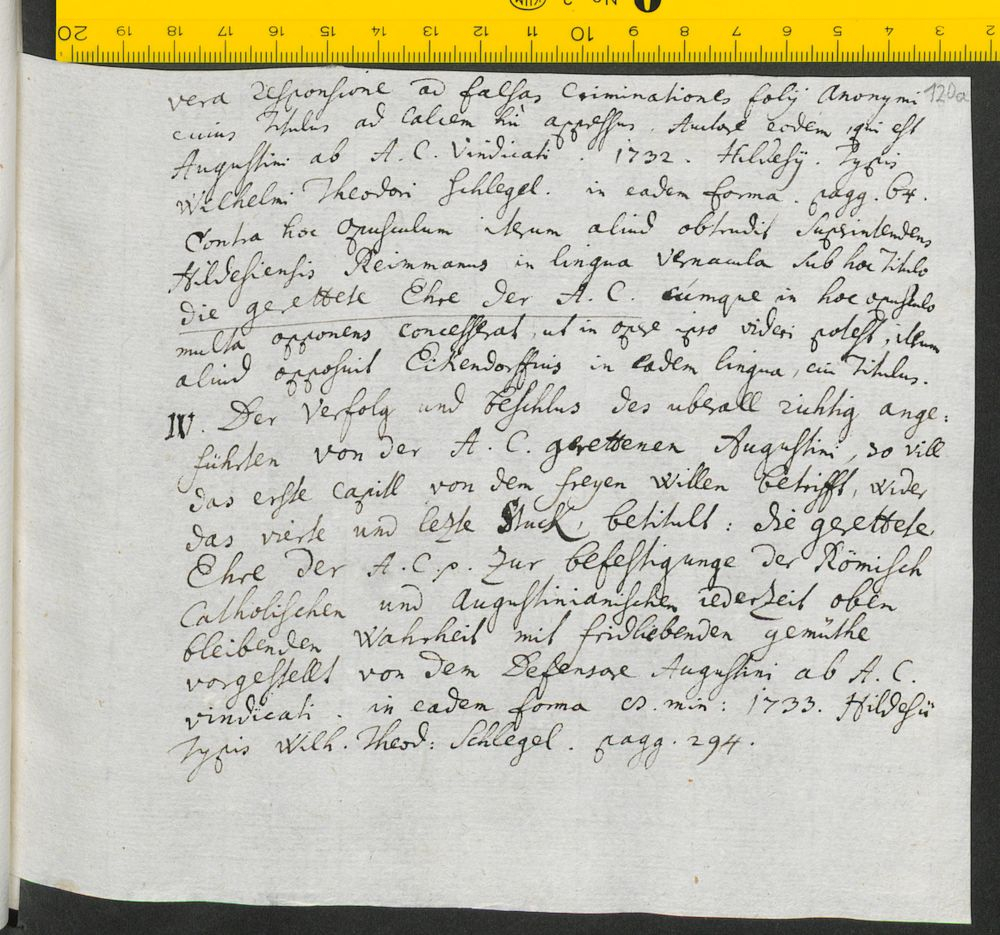 20 19 18 17 16 15 14 13 12 11 10 9 8 7 6 5 4 3 2
120a
vera responsione ad falsas Criminationes folij Anonymi
cuius Titulus ad Calcem hîc appressus. Autore eodem, qui est
Augustini ab A. C. Vindicati. 1732. Hildesij. Typis
Wilhelmi Theodori Schlegel. in eadem forma. pagg. 64.
Contra hoc Opusculum iterum aliud obtrudit Superintendens
Hildesiensis Reimmanus in lingua Vernacula sub hoc Titulo
die gerettete Ehre der A. C. cumque in hoc opusculo
multa opponens concesserat, ut in opere ipso videri potest, illum
aliud opposuit Eikendorffius in eadem lingua, cui Titulus.
IV. Der Verfolg und Beschlus des uberall richtig ange:
führten von der A. C. gerettenen Augustini, so vill
das erste Capitl von dem freyen Willen betrifft, wider
das vierte und lezte Stuck, betitult: die gerettete
Ehre der A. C. p. Zur befestigunge der Römisch
Catholischen und Augustinianischen iederzeit oben
bleibenden Wahrheit mit fridliebenden gemüthe
vorgestellt von dem Defensore Augustini ab A. C.
vindicati. in eadem forma min: 1733. Hildesii
Typis Wilh. Theod: Schlegel. pagg. 294.